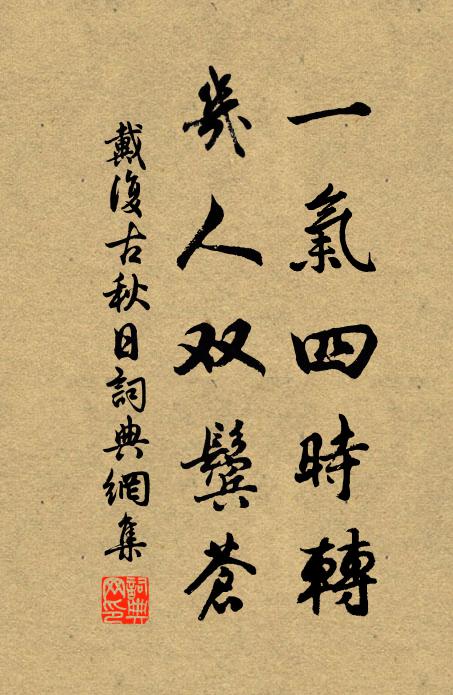 一氣四時轉
幾人双鬢蒼
戴復古秋日詞典網集
詞典网印